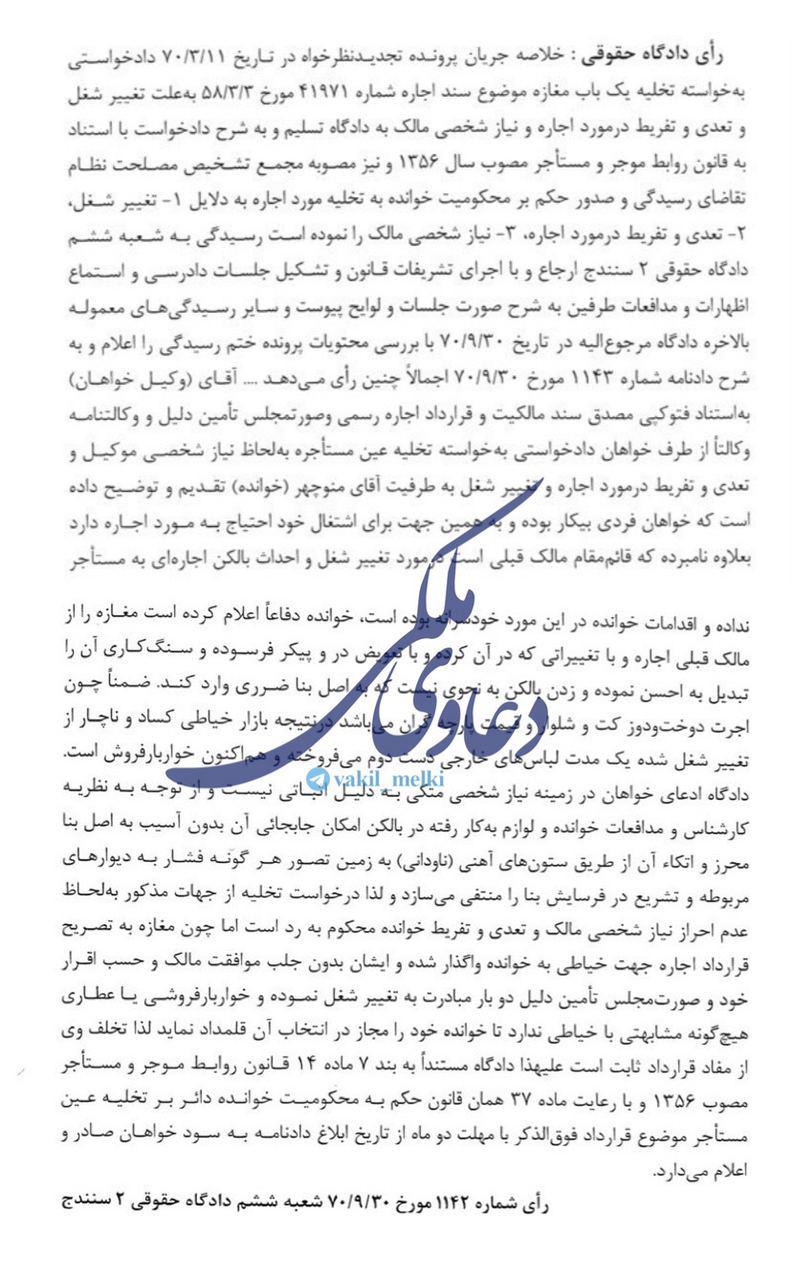 رأی دادگاه حقوقی : خلاصه جریان پرونده تجدیدنظرخواه در تاریخ ۷۰/۳/۱۱ دادخواستی
به‌خواسته تخلیه یک باب مغازه موضوع سند اجاره شماره ۴۱۹۷۱ مورخ ۵۸/۳/۳ به‌علت تغییر شغل
و تعدی و تفریط درمورد اجاره و نیاز شخصی مالک به دادگاه تسلیم و به شرح دادخواست با استناد
به قانون روابط موجر و مستأجر مصوب سال ۱۳۵۶ و نیز مصوبه مجمع تشخیص مصلحت نظام
تقاضای رسیدگی و صدور حکم بر محکومیت خوانده به تخلیه مورد اجاره به دلایل ۱- تغییر شغل،
۲- تعدی و تفریط درمورد اجاره، ۳- نیاز شخصی مالک را نموده است رسیدگی به شعبه ششم
دادگاه حقوقی ۲ سنندج ارجاع و با اجرای تشریفات قانون و تشکیل جلسات دادرسی و استماع
اظهارات و مدافعات طرفین به شرح صورت جلسات و لوایح پیوست و سایر رسیدگی‌های معموله
بالاخره دادگاه مرجوع‌الیه در تاریخ ۷۰/۹/۳۰ با بررسی محتویات پرونده ختم رسیدگی را اعلام و به
شرح دادنامه شماره ۱۱۴۳ مورخ ۷۰/۹/۳۰ اجمالاً چنین رأی می‌دهد .... آقای (وکیل خواهان)
به‌استناد فتوکپی مصدق سند مالکیت و قرارداد اجاره رسمی وصورتمجلس تأمین دلیل و وکالتنامه
وکالتاً از طرف خواهان دادخواستی به‌خواسته تخلیه عین مستأجره به‌لحاظ نیاز شخصی موکیل و
تعدی و تفریط درمورد اجاره و تغییر شغل به طرفیت آقای منوچهر (خوانده) تقدیم و توضیح داده
است که خواهان فردی بیکار بوده و به همین جهت برای اشتغال خود احتیاج به مورد اجاره دارد
بعلاوه نامبرده که قائم‌مقام مالک قبلی است درمورد تغییر شغل و احداث بالکن اجاره‌ای به مستأجر
نداده و اقدامات خوانده در این مورد خودسرانه بوده است، خوانده دفاعاً اعلام کرده است مغازه را از
مالک قبلی اجاره و با تغییراتی که در آن کرده و با تعویض در و پیکر فرسوده و سنگ‌کاری آن را
تبدیل به احسن نموده و زدن بالکن به نحوی نیست که به اصل بنا ضرری وارد کند. ضمناً چون
اجرت دوخت‌ودوز کت و شلوار و قیمت پارچه گران می‌باشد درنتیجه بازار خیاطی کساد و ناچار از
تغییر شغل شده یک مدت لباس‌های خارجی دست دوم می‌فروخته و هم‌اکنون خواربارفروش است.
vakil_melki
دعاوی ملکی
دادگاه ادعای خواهان در زمینه نیاز شخصی متکی به دلیل اثباتی نیست و از توجه به نظریه
کارشناس و مدافعات خوانده و لوازم به‌کار رفته در بالکن امکان جابجائی آن بدون آسیب به اصل بنا
محرز و اتکاء آن از طریق ستون‌های آهنی (ناودانی) به زمین تصور هر گونه فشار به دیوارهای
مربوطه و تشریع در فرسایش بنا را منتفی می‌سازد و لذا درخواست تخلیه از جهات مذکور به‌لحاظ
عدم احراز نیاز شخصی مالک و تعدی و تفریط خوانده محکوم به رد است اما چون مغازه به تصریح
قرارداد اجاره جهت خیاطی به خوانده واگذار شده و ایشان بدون جلب موافقت مالک و حسب اقرار
خود و صورت‌مجلس تأمین دلیل دو بار مبادرت به تغییر شغل نموده و خواربارفروشی یا عطاری
هیچ‌گونه مشابهتی با خیاطی ندارد تا خوانده خود را مجاز در انتخاب آن قلمداد نماید لذا تخلف وی
از مفاد قرارداد ثابت است علیهذا دادگاه مستنداً به بند ۷ ماده ۱۴ قانون روابط موجر و مستأجر
مصوب ۱۳۵۶ و با رعایت ماده ۳۷ همان قانون حکم به محکومیت خوانده دائر بر تخلیه عین
مستأجر موضوع قرارداد فوق‌الذکر با مهلت دو ماه از تاریخ ابلاغ دادنامه به سود خواهان صادر و
اعلام می‌دارد.
رأی شماره ۱۱۴۲ مورخ ۷۰/۹/۳۰ شعبه ششم دادگاه حقوقی ۲ سنندج